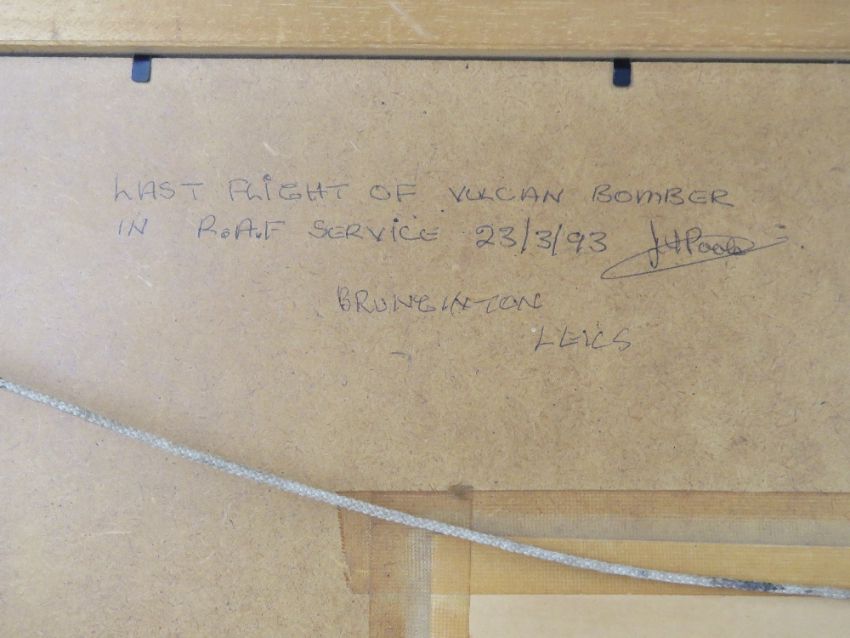 LAST FLIGHT OF VULCAN BOMBER
IN R.A.F SERVICE 23/3/93
LEICS